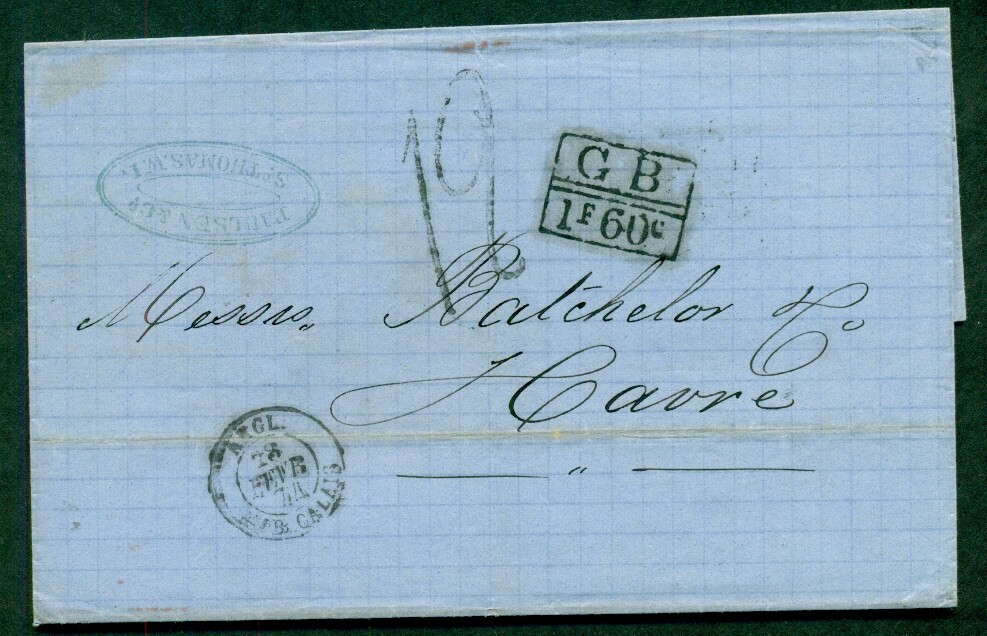 G B
1F 60c
PAULSEN & Co
St. THOMAS. W. I.
Messrs. Batchelor & Co
Havre
ANGL.
28
FEVR
74
AMB. CALAIS